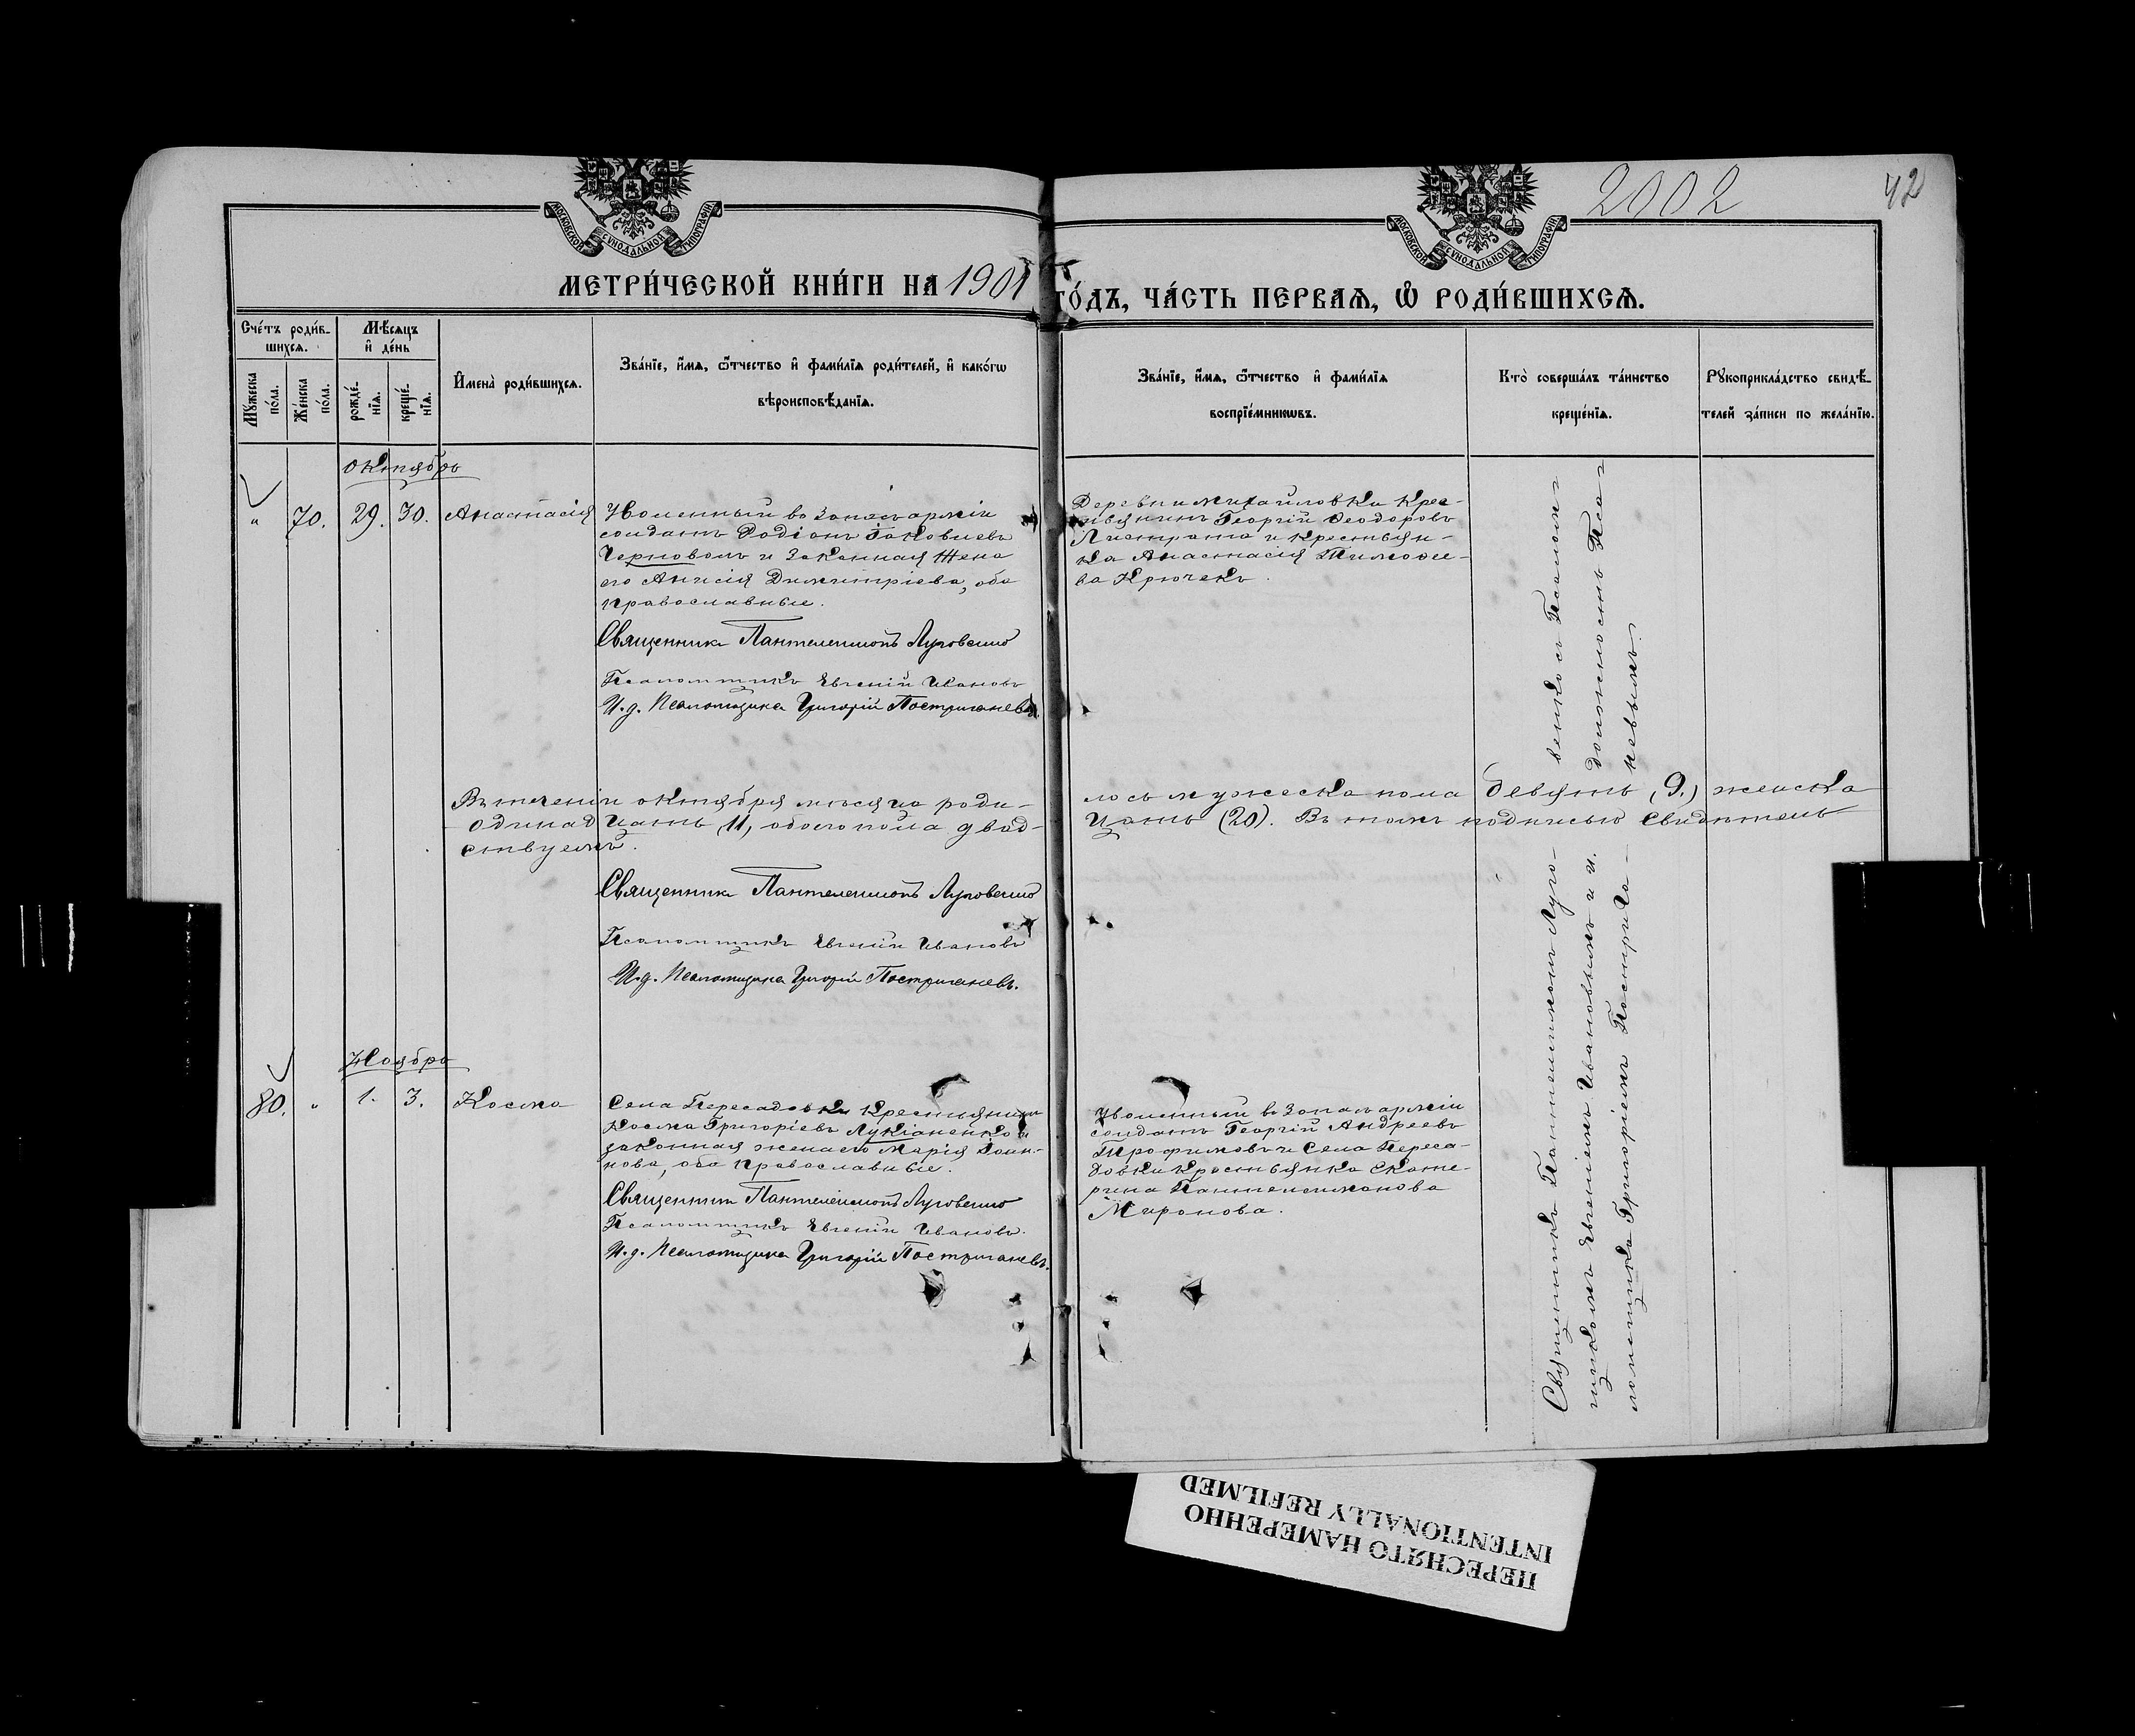 МОСКОВСКОЙ СУНОДАЛЬНОЙ ТИПОГРАФІИ
МОСКОВСКОЙ СУНОДАЛЬНОЙ ТИПОГРАФІИ
2002
42
МЕТРИ́ЧЕСКОЙ КНИ́ГИ НА 1901 ГО́ДЪ, ЧА́СТЬ ПЕ́РВАѦ, Ѽ РОДИ́ВШИХСѦ.
Сче́тъ роди́в-
шихсѧ.
Мꙋ́жеска по́ла.
Же́нска по́ла.
Мѣ́сѧцъ
и҆ де́нь
рожде́-
нїѧ.
креще́-
нїѧ.
И҆мена̀ роди́вшихсѧ.
Зва́нїе, и҆́мѧ, ѻ҆́тчество и҆ фами́лїѧ роди́телей, и҆ како́гѡ
вѣроисповѣ́данїѧ.
Зва́нїе, и҆́мѧ, ѻ҆́тчество и҆ фами́лїѧ
воспрїе́мникѡвъ.
Кто̀ соверша́лъ та́инство
креще́нїѧ.
Рꙋкоприкла́дство свидѣ́-
телей за́писи по жела́нїю.
Октябрь
„ 70. 29. 30. Анастасія
Уволенный въ запасъ арміи
солдатъ Родіонъ Іаковлевъ
Черноволъ и законная жена
его Анисія Димитріева, оба
православные.
Священникъ Пантелеимонъ Луговенко
Псаломщикъ Евгеній Ивановъ
И. д. Псаломщика Григорій Постригачевъ.
Деревни Михайловки крес-
тьянинъ Георгій Ѳеодоровъ
Листрата и крестьян-
ка Анастасія Тимоѳе-
ва Крючекъ.
Въ теченіи октября мѣсяца роди-лось мужеска пола девять (9.) женска
одинадцать (11, обоего пола двад-цать (20). Въ томъ подписью свидѣтель-
ствуемъ.
Священникъ Пантелеимонъ Луговенко
Псаломщикъ Евгеній Ивановъ
И. д. Псаломщика Григорій Постригачевъ.
Ноябрь
80. „ 1. 3. Косма
Села Пересадовки крестьянинъ
Косма Григоріевъ Лукіаненко и
законная жена его Марія Іоан-
нова, оба православные.
Священникъ Пантелеимонъ Луговенко
Псаломщикъ Евгеній Ивановъ.
И. д. Псаломщика Григорій Постригачевъ.
Уволенный въ запасъ арміи
солдатъ Георгій Андреевъ
Трофимовъ и Села Переса-
довки крестьянка Екате-
рина Пантелеимонова
Миронова.
Священникъ Пантелеимонъ Луго-венко съ Псалом-
щикомъ Евгеніемъ Ивановымъ и и. должность Пса-
ломщика Григоріемъ Пострига-чевымъ.
ПЕРЕСНЯТО НАМЕРЕННО
INTENTIONALLY REFILMED